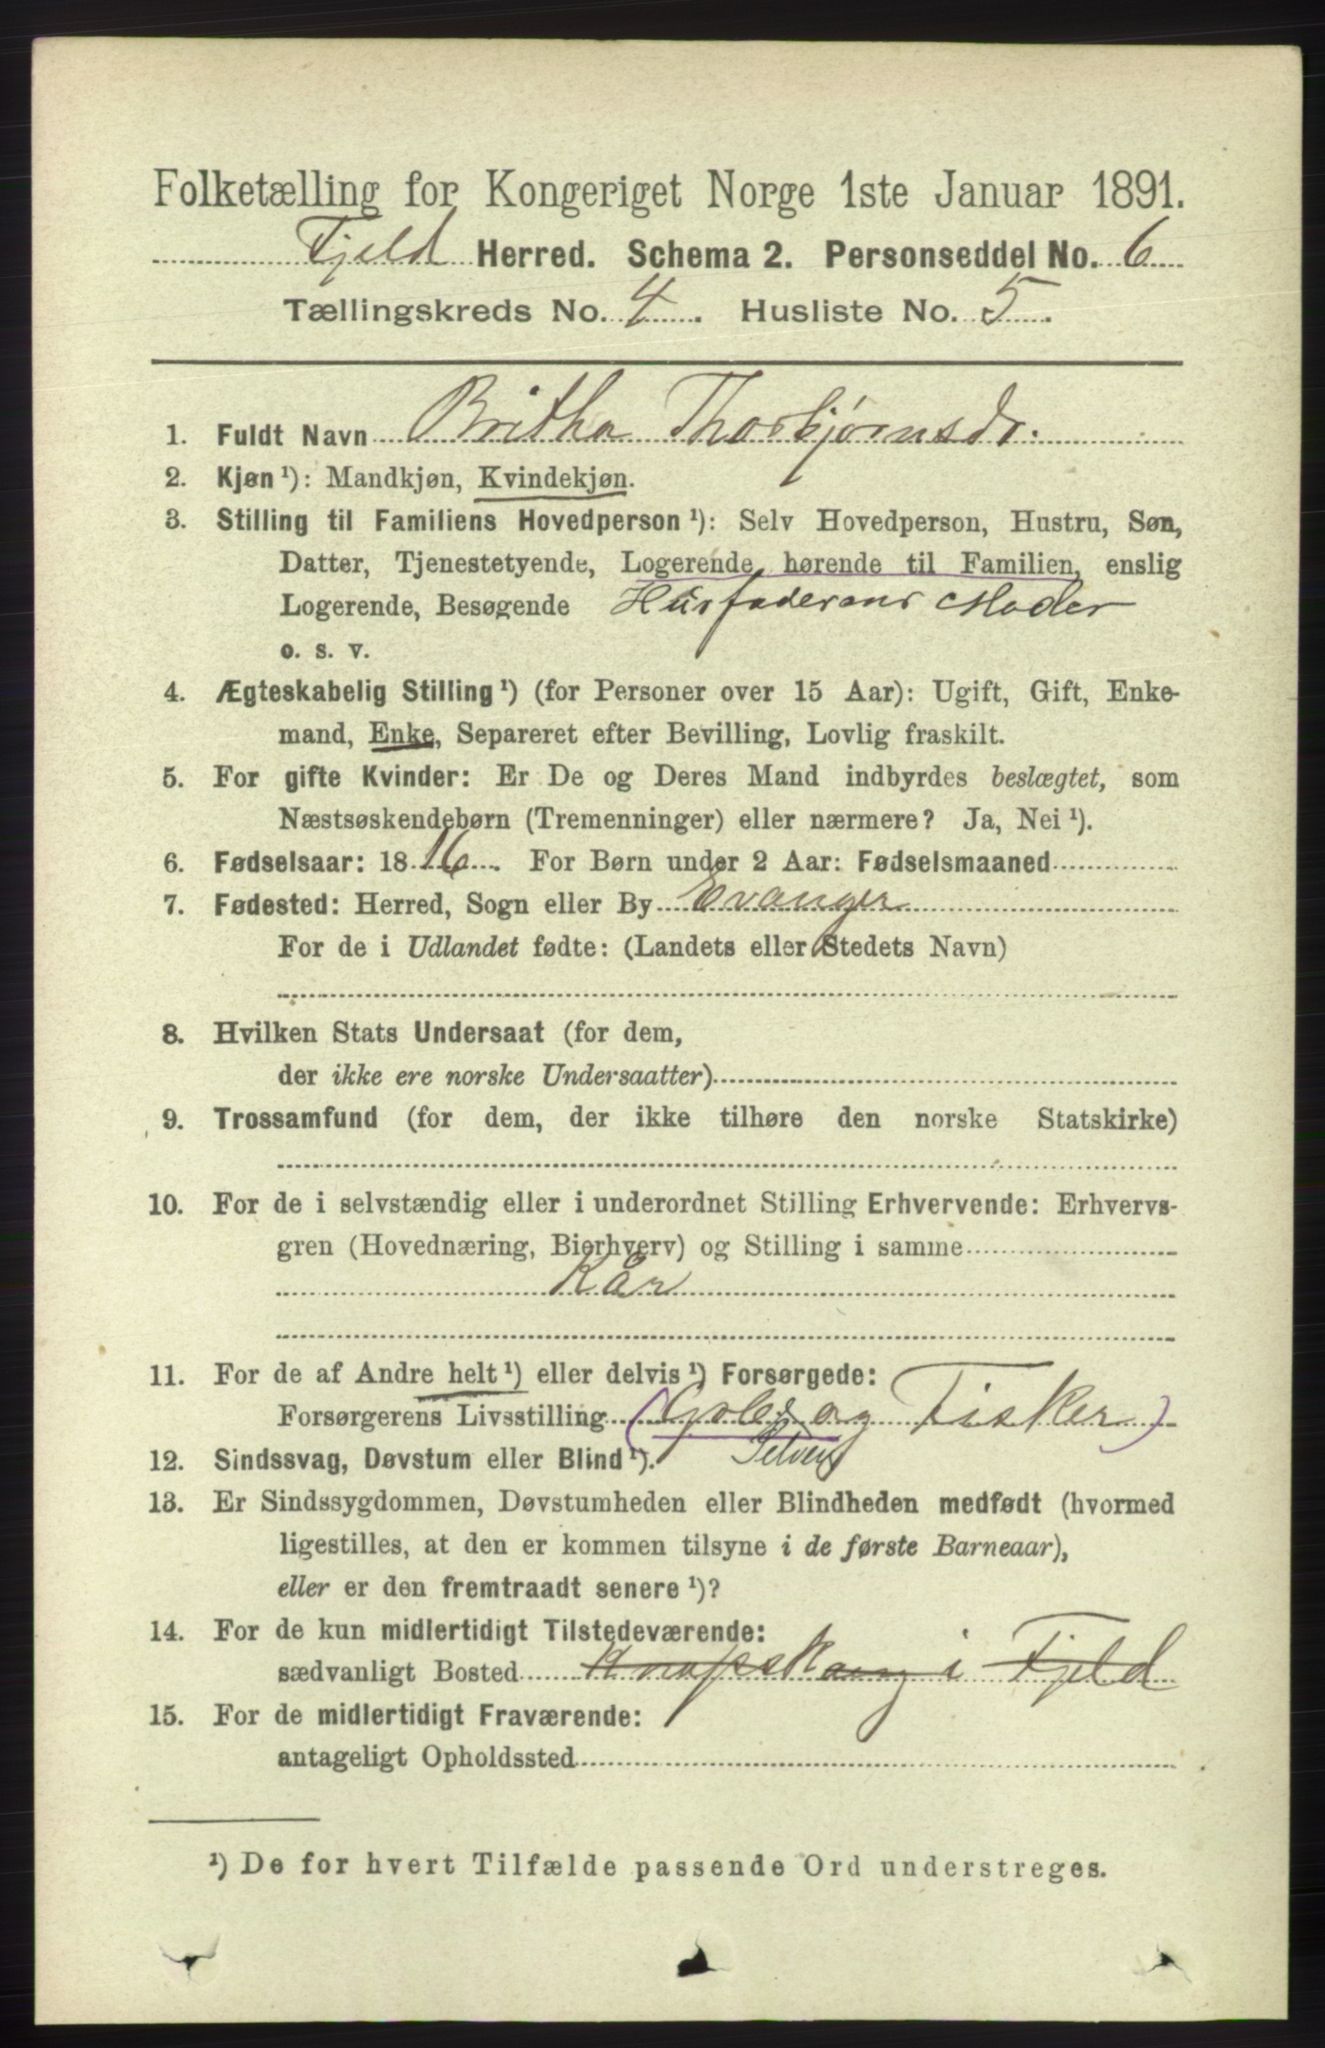 Folketælling for Kongeriget Norge 1ste Januar 1891.
Fjeld Herred. Schema 2. Personseddel No. 6
Tællingskreds No. 4. Husliste No. 5.
1. Fuldt Navn Britha Thorbjørnsdr.
2. Kjøn ¹): Mandkjøn, Kvindekjøn.
3. Stilling til Familiens Hovedperson ¹): Selv Hovedperson, Hustru, Søn,
Datter, Tjenestetyende, Logerende hørende til Familien, enslig
Logerende, Besøgende Husfaderens Moder
o. s. v.
4. Ægteskabelig Stilling ¹) (for Personer over 15 Aar): Ugift, Gift, Enke-
mand, Enke, Separeret efter Bevilling, Lovlig fraskilt.
5. For gifte Kvinder: Er De og Deres Mand indbyrdes beslægtet, som
Næstsøskendebørn (Tremenninger) eller nærmere? Ja, Nei ¹).
6. Fødselsaar: 1816. For Børn under 2 Aar: Fødselsmaaned
7. Fødested: Herred, Sogn eller By Evanger
For de i Udlandet fødte: (Landets eller Stedets Navn)
8. Hvilken Stats Undersaat (for dem,
der ikke ere norske Undersaatter)
9. Trossamfund (for dem, der ikke tilhøre den norske Statskirke)
10. For de i selvstændig eller i underordnet Stilling Erhvervende: Erhvervs-
gren (Hovednæring, Bierhverv) og Stilling i samme
Kår
11. For de af Andre helt ¹) eller delvis ¹) Forsørgede:
Forsørgerens Livsstilling (Gbr og Fisker)
12. Sindssvag, Døvstum eller Blind ¹). Selveier
13. Er Sindssygdommen, Døvstumheden eller Blindheden medfødt (hvormed
ligestilles, at den er kommen tilsyne i de første Barneaar),
eller er den fremtraadt senere ¹)?
14. For de kun midlertidigt Tilstedeværende:
sædvanligt Bosted Knapskaug i Fjeld
15. For de midlertidigt Fraværende:
antageligt Opholdssted
¹) De for hvert Tilfælde passende Ord understreges.